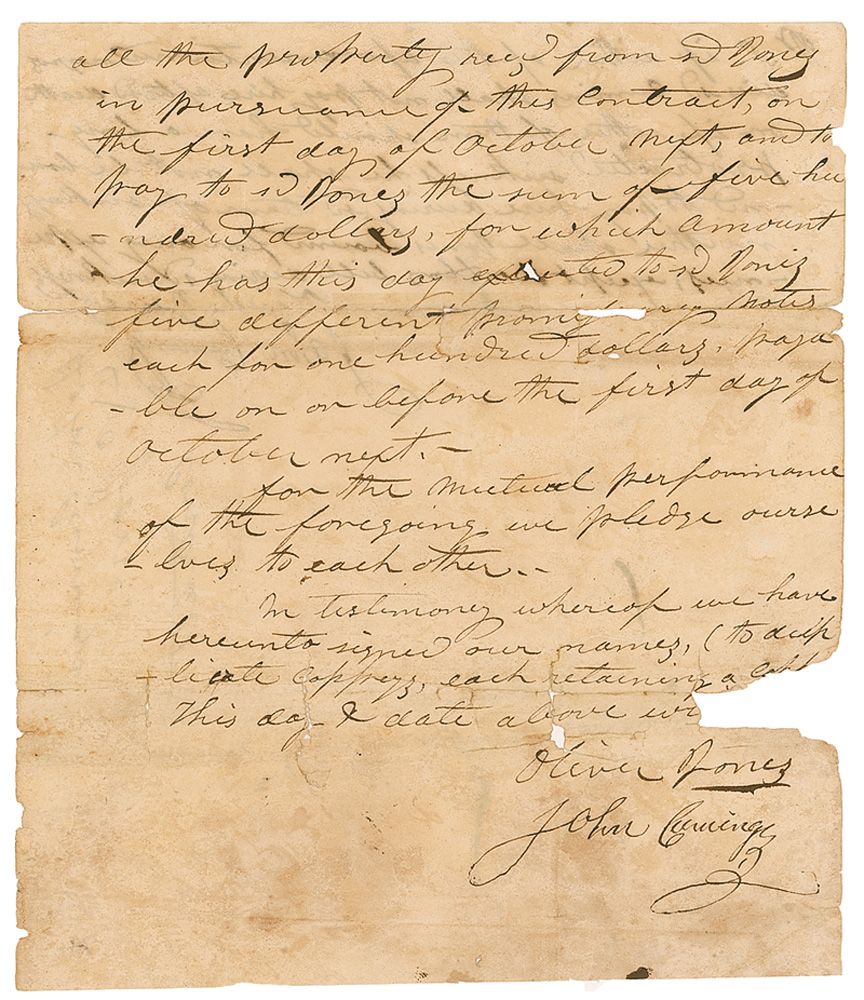 all the property recd from sd Jones
in pursuance of this Contract, on
the first day of October next, and to
pay to sd Jones the sum of five hu
-ndred dollars, for which amount
he has this day executed to sd Jones
five different notes
each for one hundred dollars, paya
-ble on or before the first day of
October next.-
for the mutual performance
of the foregoing we pledge ourse
-lves to each other.-
In testimony whereof we have
hereunto signed our names, (to dup
-licate Coppeys, each retaining a
This day & date above
Oliver Jones
John